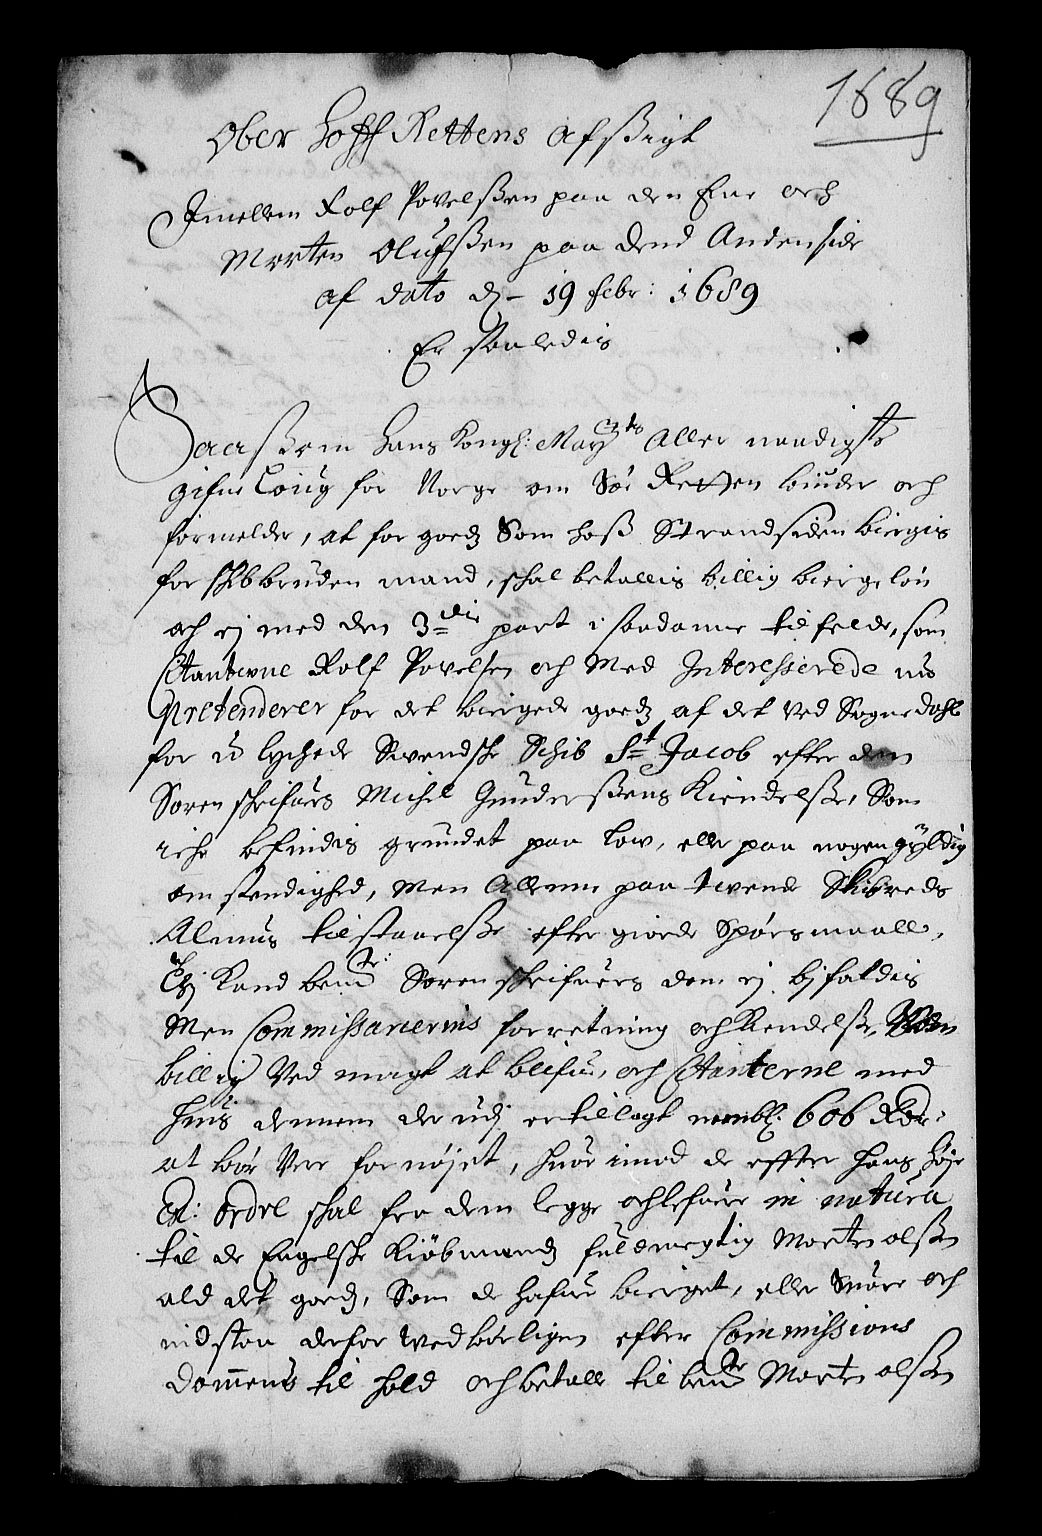 1689
Ober Hoff Rettens Afsigt
Imellem Rolf Povelsen paa den Ene och
Morten Olufsen paa dend Anden side
af dato d. 19 febr: 1689
Er saaledis
Saasom Hans Kongl: Maytz Aller naadigste
gifne Loug for Norge om Søe Retten biuder och
formelder, at for goedz Som hoss Strandsiden biergis
for skibbruden mand, schal betallis billig biergeløn
och ej med den 3die part i saadanne tilfelde, som
Citanterne Rolf Povelsen och Med Interesserede nu
prætenderer for det biergede goedz af det ved Sognedahl
for u lychede Swendske Schib St Jacob efter den
Sorenschrifuers Michel Gundersens Kiendelse, Som
iche befindis grundet paa low, eller paa nogen gyldig
omstendighed, Men Allene paa twende Skibreds
Almues tilstaaelse efter giorde Spørsmaall,
Ej Kand bemte: Sorenschrifuers dom ej byfaldis
Men Commissariernis forretning och Kiendelse
billig Ved magt at blifue, och Citanterne med
huis dennem der udj er tillagt nembl. 606 Rdr:
at bør Vere fornøjet, huor imod de effter hans høje
Ex: Ordre schal fra dem legge och lefuere in natura
til de Engelsche Kiøbmends fuldmegtig Morten olsen
ald det goedz, Som de hafuer bierget, eller Suare och
indstaa derfor wedbørligen efter Commissions
dommens til hold och betalle til bemte Morten olsen